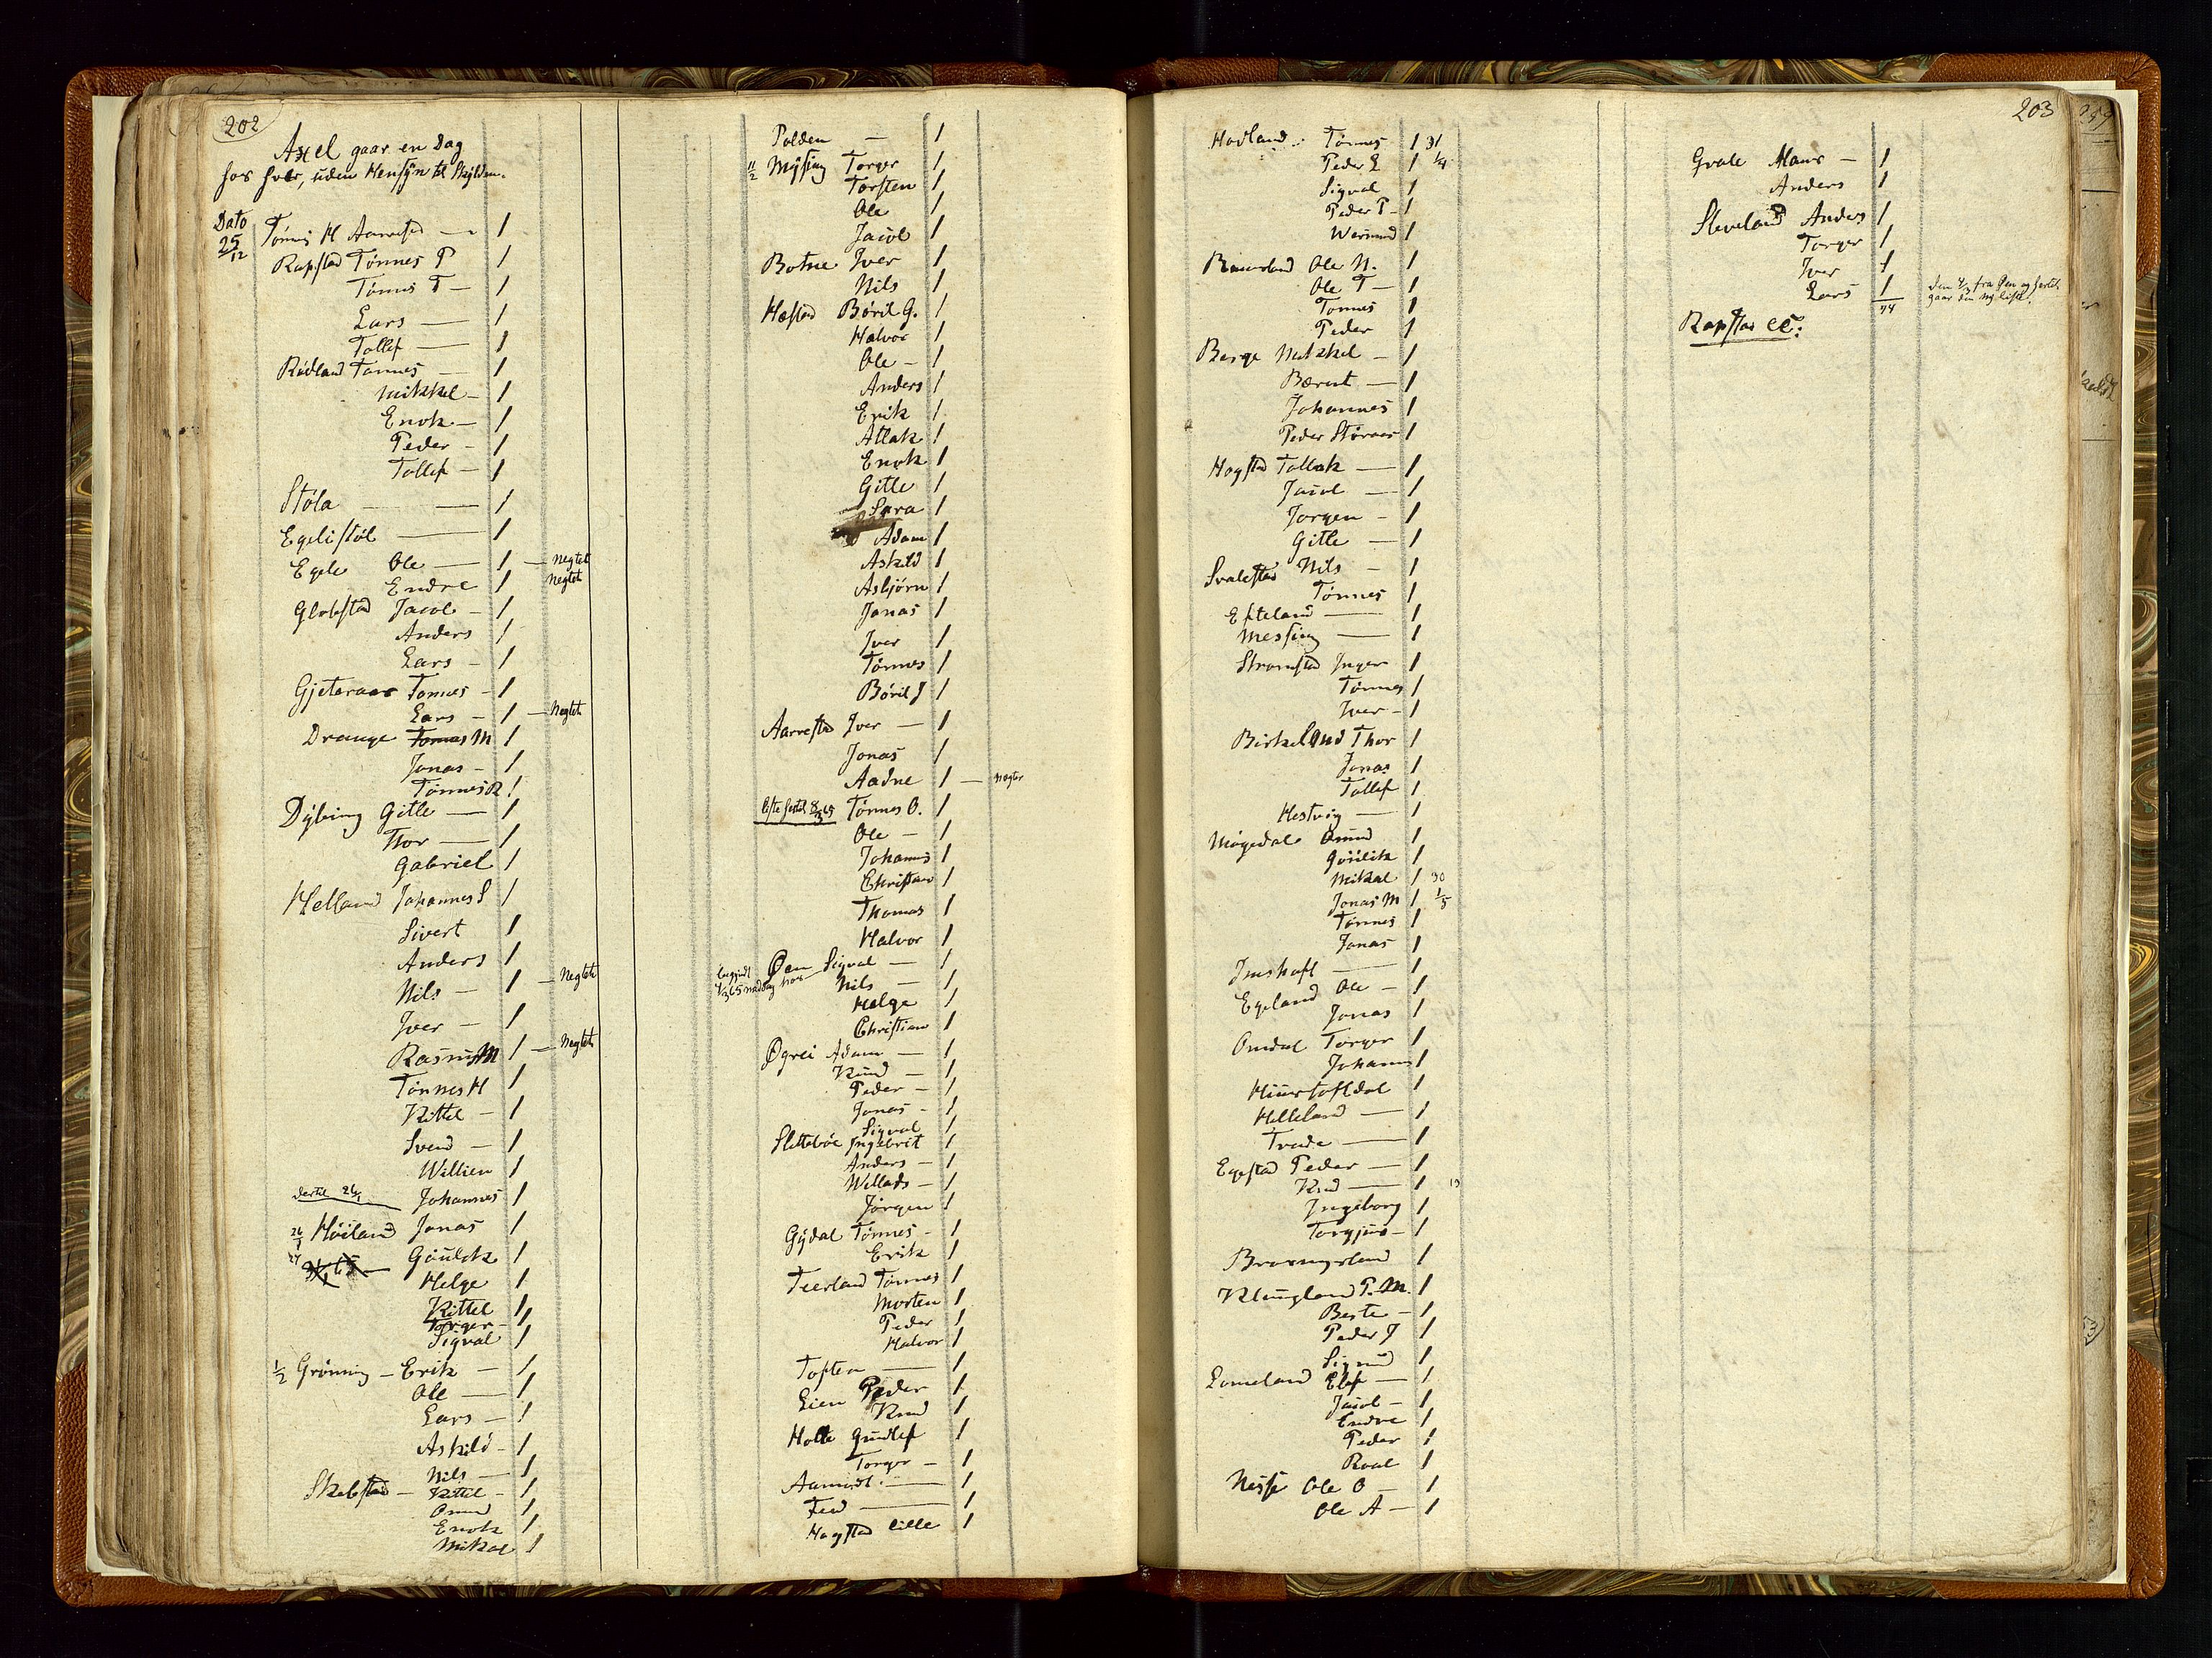 202
Axel gaar en Dag
for hver, uden Hensÿn til Skÿlden.
Dato
25/12 Tönnes H Aarrestad — 1
Rapstad Tønnes P 1
Tønnes T — 1
Lars — 1
Tollef — 1
Rødland Tønnes — 1
Mikkel — 1
Enok — 1
Peder — 1
Tollef — 1
Støla — 1
Egelistøl — 1
Egele Ole — 1 — Negtet
Endre 1 Negtet
Globstad Jacob — 1
Anders 1
Lars — 1
Gjeteraas Tønnes — 1
Lars — 1 — Negtet
Drange Tønnes M 1
Jonas — 1
Tønnes R 1
Dÿbing Gitle — 1
Thor — 1
Gabriel 1
Helland Johannes S 1
Sivert 1
Anders 1
Nils — 1 — Negtet
Iver — 1
Rasmus M 1 — Negtet
Tønnes H 1
Kittel — 1
Svend — 1
Willien 1
dertil 26/1 Johannes 1
26/1 Høiland Jonas 1
27 Gøulek 1
Helge 1
Kittel 1
Torger — 1
Sigval 1
1/2 Grøning — Erik — 1
Ole — 1
Lars — 1
Askild — 1
Nils — 1
Skebstad — Kittel — 1
Omund 1
Enok 1
Mikal 1
Polden — 1
11/2 Mÿsing Torger 1
Torsten 1
Ole 1
Jacob 1
Botne Iver 1
Nils 1
Hæstad Børil G. 1
Halvor 1
Ole — 1
Anders 1
Erik 1
Atlak 1
Enok 1
Gitle 1
Sara 1
Adam 1
Askild 1
Asbjørn 1
Jonas 1
Iver 1
Tønnes 1
Børil J 1
Aarrestad Iver — 1
Jonas 1
Aadne 1 — negter
Tønnes O. 1
Ole — 1
Johannes 1
Christian 1
Thomas 1
Halvor 1
Øen Sigval — 1
Nils — 1
Helge 1
Christian 1
Øgrei Adam — 1
Knud — 1
Peder — 1
Jonas — 1
Sigval 1
Slettebøe Ingebret 1
Anders — 1
Willads — 1
Jørgen 1
Gÿdal Tønnes — 1
Erik 1
Teerland Tønnes 1
Morten 1
Peder 1
Halvor 1
Toften — 1
Lien Peder 1
Knud 1
Holte Gundlef 1
Torger — 1
Aamodt — 1
Feed — 1
Hogstad lille 1
203
Hadland Tønnes 1 31
Peder L 1 1/4
Sigval 1
Peder P — 1
Wermund 1
Ole N. 1
Ole T — 1
Tønnes 1
Peder 1
Berge Mikkel — 1
Bærent — 1
Johannes 1
Peder Støraas 1
Hogstad Tollak — 1
Jacob — 1
Jørgen — 1
Gitle — 1
Svalestad Nils — 1
Tønnes 1
Efteland — 1
Messing — 1
Strømstad Inger 1
Tønnes 1
Iver — 1
Birkeland Thor 1
Jonas 1
Tollef 1
Hestvig — 1
Møgedal Omund 1
Gøulik 1
Mikal 1 30
Jonas M 1 1/5
Tønnes 1
Jonas 1
Imshaft — 1
Egeland Ole — 1
Jonas 1
Omdal Torger 1
Johannes 1
1
Helleland — 1
Tvede — 1
Egestad Peder — 1
Knud — 1
Ingeborg 1
Torgjus — 1
1
Klungland P. M. 1
Berte — 1
Peder J 1
Sigmund 1
Lomeland Elef — 1
Jacob — 1
Endre 1
Peder 1
Roal 1
Nesse Ole O — 1
Ole A — 1
Gvale Hans — 1
Anders 1
Sleveland Anders 1
Torger 1
Iver 1
Lars 1
44
Rapstad